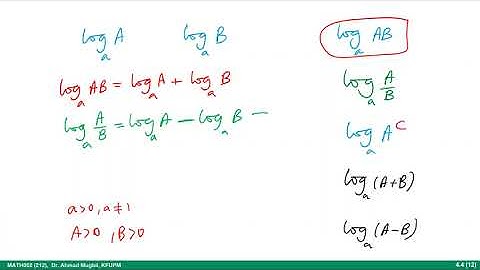 logₐ A logₐ B
logₐ AB = logₐ A + logₐ B
logₐ A/B = logₐ A − logₐ B −
a>0, a≠1
A>0 , B>0
logₐ AB
logₐ A/B
logₐ A^C
logₐ (A+B)
logₐ (A−B)
MATH002 (212), Dr. Ahmad Muqbil, KFUPM
4.4 (12)